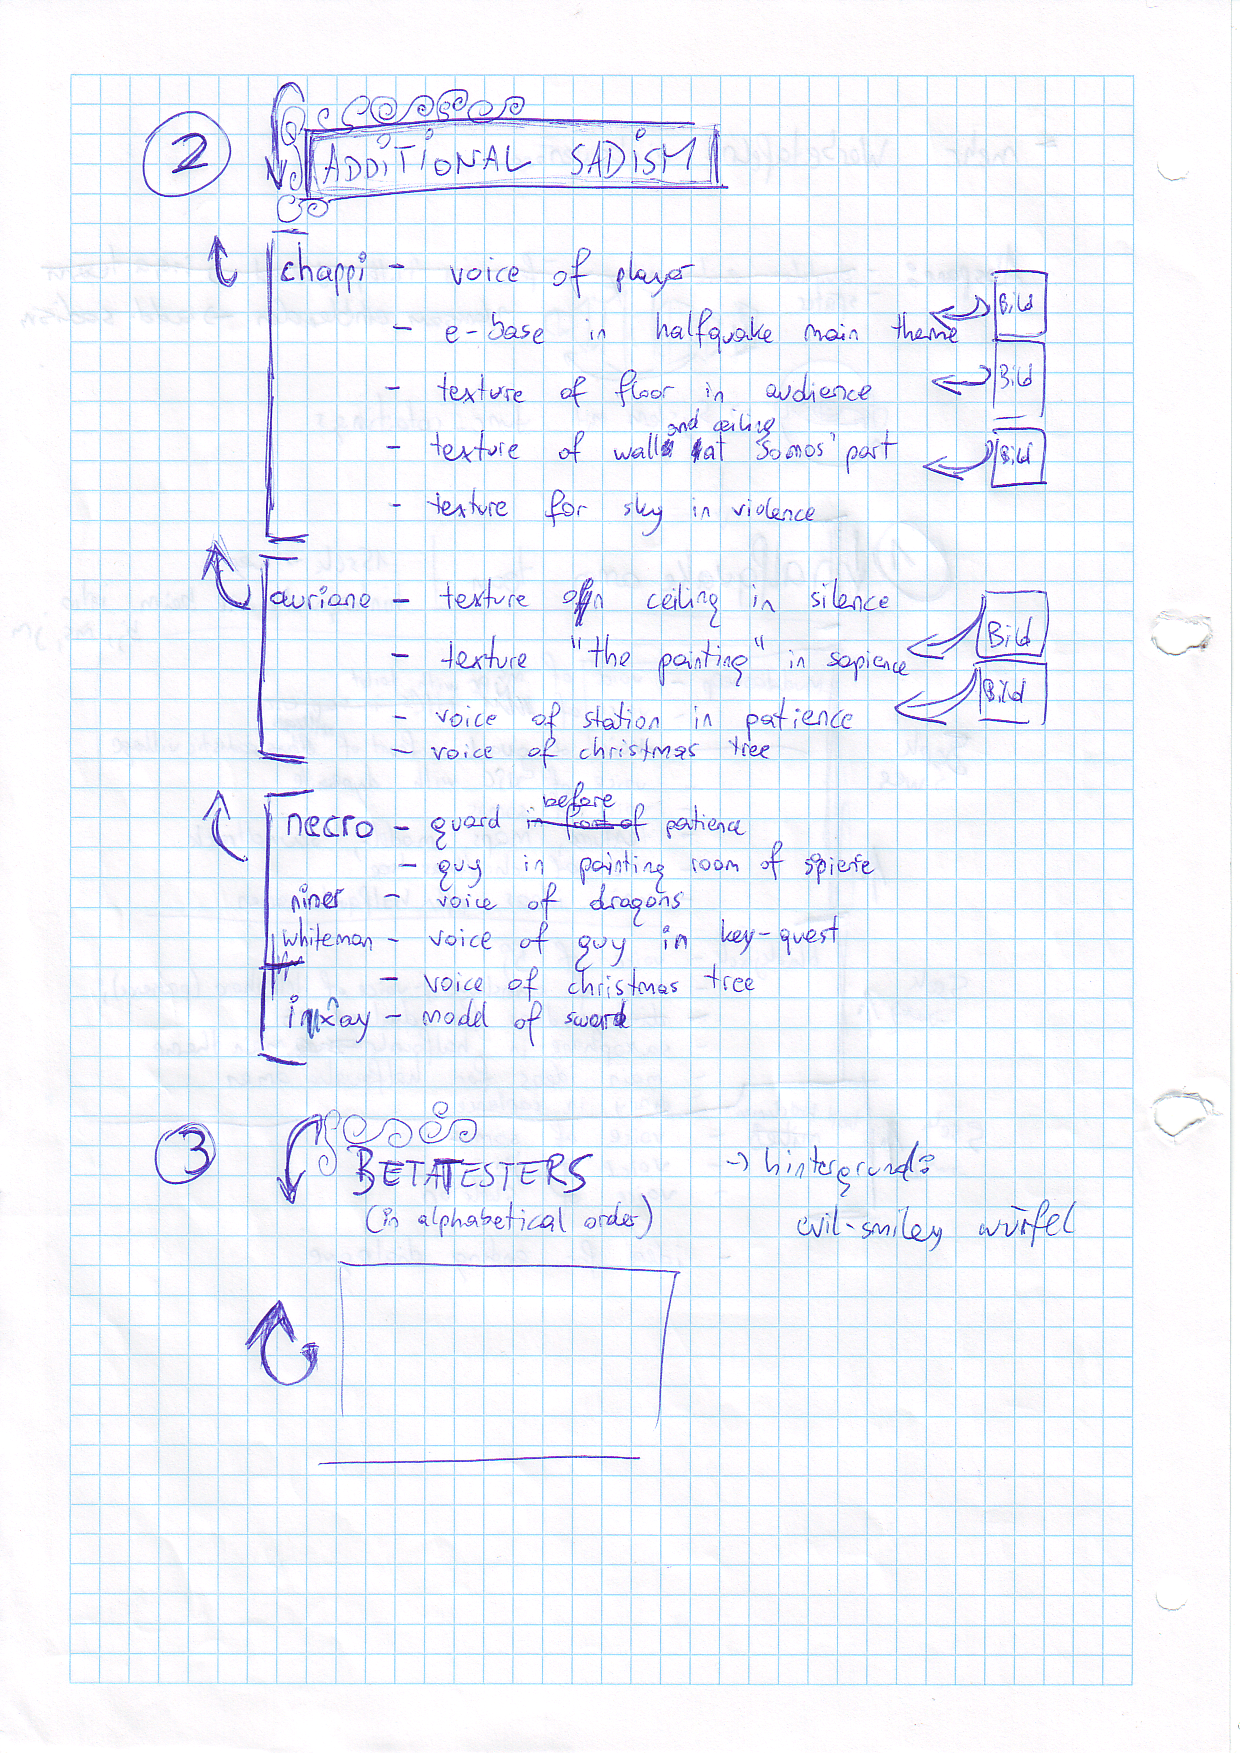 2
ADDITIONAL SADISM
chappi - voice of player
- e-base in halfquake main theme
Bild
- texture of floor in audience
Bild
and ceiling
- texture of wall at somos' part
Bild
- texture for sky in violence
auriane - texture on ceiling in silence
- texture "the painting" in sapience
Bild
- voice of station in patience
Bild
- voice of christmas tree
before
necro - guard in front of patience
- guy in painting room of
niner - voice of dragons
whiteman - voice of guy in key-quest
- voice of christmas tree
- model of sword
3
BETATESTERS
(in alphabetical order)
→ hintergrund:
evil-smiley würfel